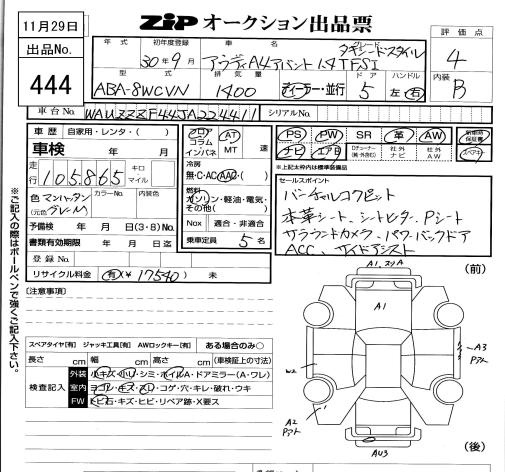 11月29日
ZIP オークション出品票
出品No.
444
評価点
4
内装
B
年式 初年度登録 車名 グレード
30年9月 アウディA4アバント 1.4TFSI
型式 排気量 ドア ハンドル
ABA-8WCVN 1400 ディーラー・並行 5 左・右
車台No. WAUZZZF44JA224411 シリアルNo.
車歴 自家用・レンタ・( )
車検 年 月
走行 105,865 キロ マイル
色 マンハッタン (元色 グレーM) カラーNo. 内装色
予備検 年 月 日(3・8)No.
書類有効期限 年 月 日迄
登録No.
リサイクル料金 有(¥17540) 未
フロア コラム インパネ AT MT 速
冷房 無・C・AC・AAC・( )
燃料 ガソリン・軽油・電気・その他( )
Nox 適合・非適合
乗車定員 5名
PS PW SR 革 AW
ナビ エアB Dチューナー 社外ナビ 社外AW
新車時保証書
スペアキー
※上記太わくは標準装備品
セールスポイント
バーチャルコクピット
本革シート、シートヒーター、Pシート
サラウンドカメラ、パワーバックドア
ACC、サイドアシスト
※ご記入の際はボールペンで強くご記入下さい。
[注意事項]
スペアタイヤ[有] ジャッキ工具[有] AWロックキー[有] ある場合のみ○
長さ cm 幅 cm 高さ cm (車検証上の寸法)
検査記入
外装 小キズ・小凹・シミ・ホイルA・ドアミラー(A・ワレ)
室内 ヨゴレ・キズ・スレ・コゲ・穴・キレ・破れ・ウキ
FW トビ石・キズ・ヒビ・リペア跡・X要ス
(前)
A1
A3
Pアト
A2
Pアト
AU3
(後)